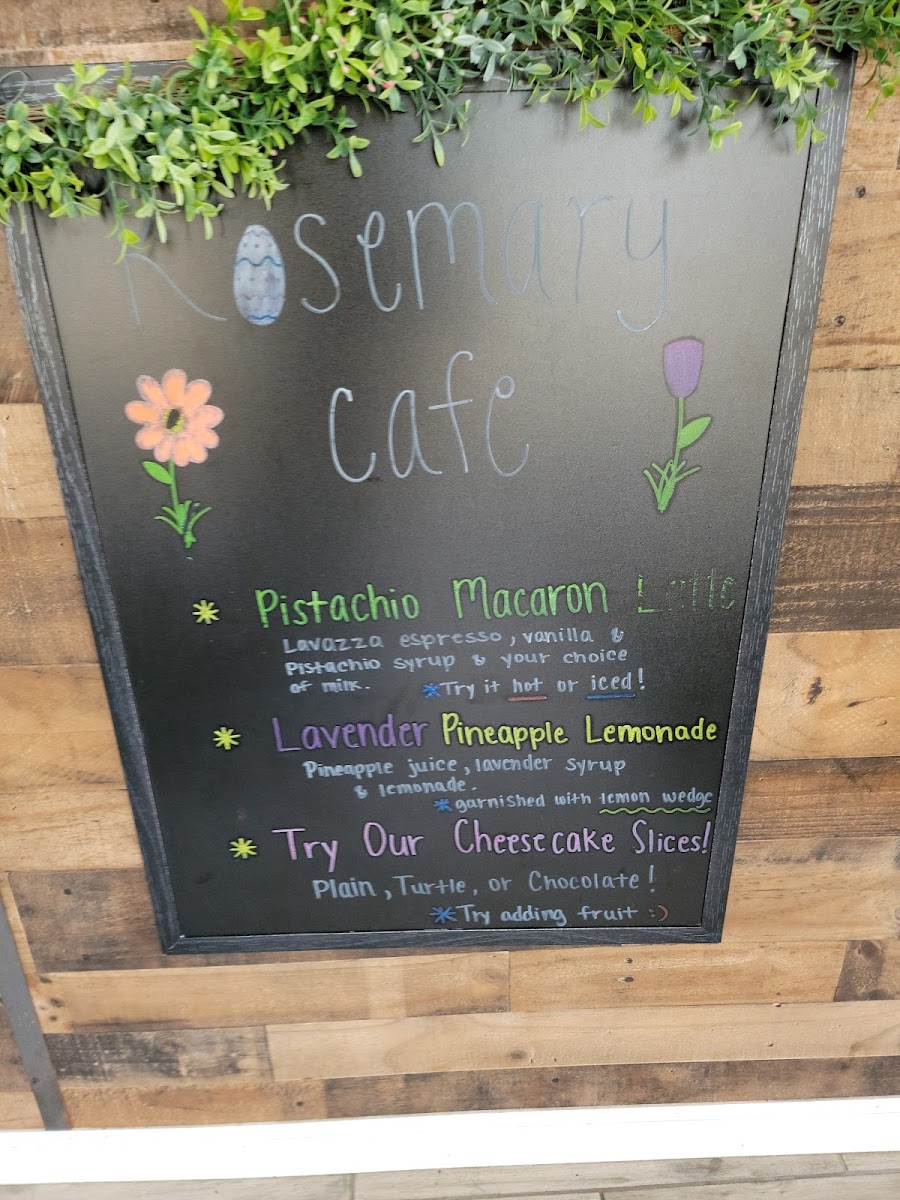 Rosemary
Cafe
* Pistachio Macaron Latte
Lavazza espresso, vanilla &
Pistachio syrup & your choice
of milk. *Try it hot or iced!
* Lavender Pineapple Lemonade
Pineapple juice, lavender syrup
& lemonade.
*garnished with lemon wedge
* Try Our Cheesecake Slices!
Plain, Turtle, or Chocolate!
*Try adding fruit :)